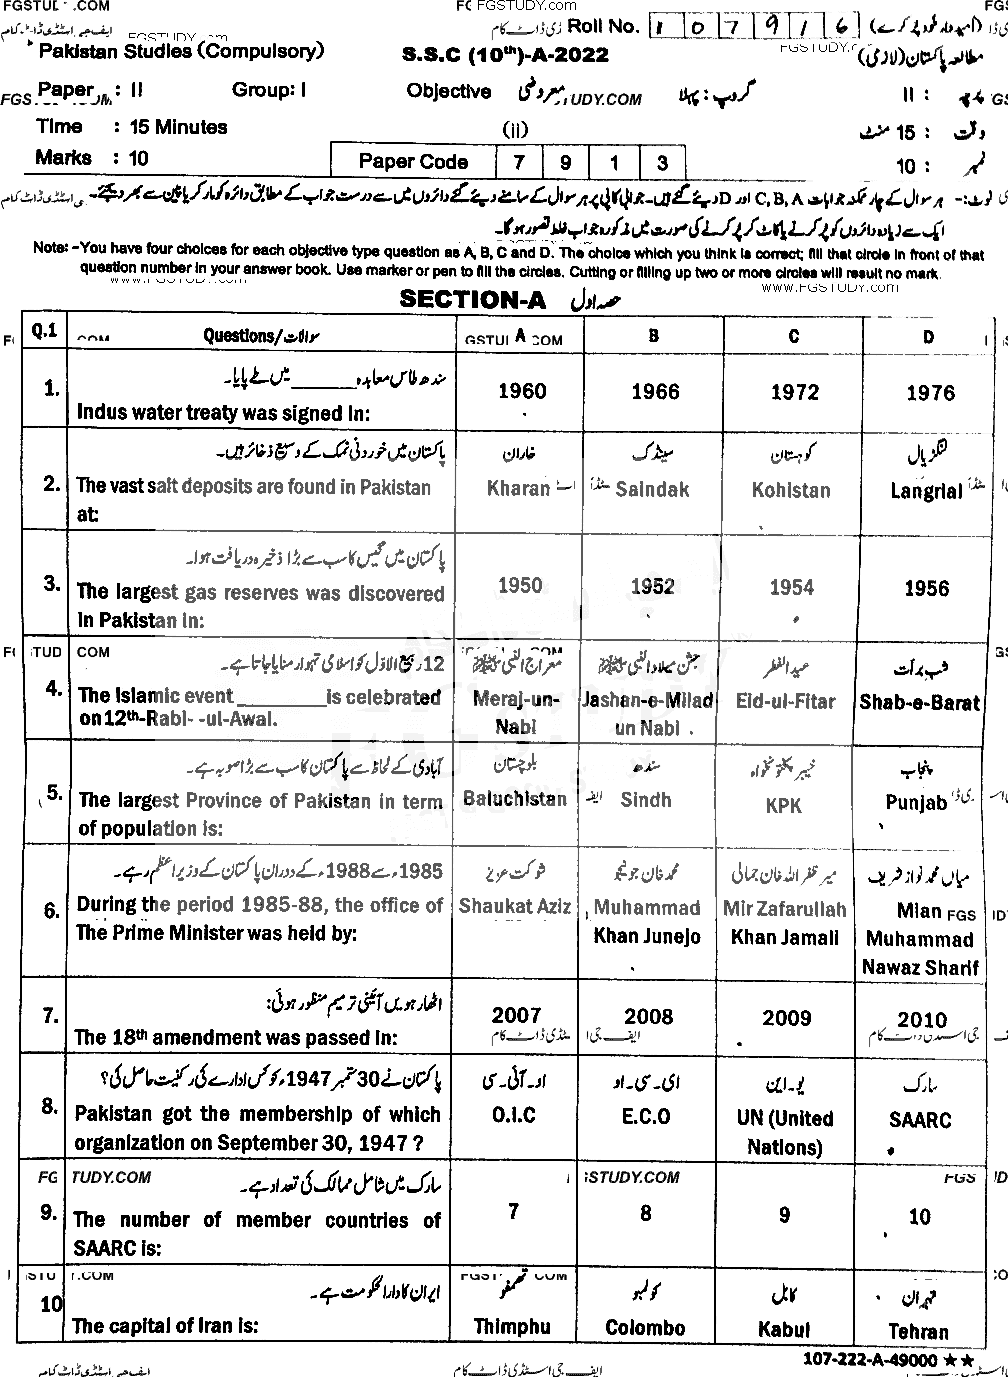 FGSTUDY.COM FGSTUDY.com
Roll No. 1 0 7 9 1 6 (امیدوار خود پُر کرے)
Pakistan Studies (Compulsory) S.S.C (10th)-A-2022 مطالعہ پاکستان (لازمی)
Paper : II Group: I Objective معروضی گروپ: پہلا پرچہ : II
Time : 15 Minutes (ii) وقت : 15 منٹ
Marks : 10 Paper Code 7 9 1 3 نمبر : 10
نوٹ:- ہر سوال کے چار ممکنہ جوابات C, B, A اور D دیئے گئے ہیں۔ جوابی کاپی پر ہر سوال کے سامنے دیئے گئے دائروں میں سے درست جواب کے مطابق دائرہ کو مارکر یا پین سے بھر دیجئے۔
ایک سے زیادہ دائروں کو پُر کرنے یا کاٹ کر پُر کرنے کی صورت میں مذکورہ جواب غلط تصور ہو گا۔
Note: -You have four choices for each objective type question as A, B, C and D. The choice which you think is correct; fill that circle in front of that
question number in your answer book. Use marker or pen to fill the circles. Cutting or filling up two or more circles will result no mark.
www.FGSTUDY.com
SECTION-A حصہ اول
Q.1 Questions/سوالات A B C D
1. سندھ طاس معاہدہ ______ میں طے پایا۔
Indus water treaty was signed in: 1960 1966 1972 1976
2. پاکستان میں خوردنی نمک کے وسیع ذخائر ہیں۔ خاران سینڈک کوہستان لنگڑیال
The vast salt deposits are found in Pakistan Kharan Saindak Kohistan Langrial
at:
3. پاکستان میں گیس کا سب سے بڑا ذخیرہ دریافت ہوا۔
The largest gas reserves was discovered 1950 1952 1954 1956
in Pakistan in:
4. 12 ربیع الاوّل کو اسلامی تہوار منایا جاتا ہے۔ معراج النبی ﷺ جشن میلاد النبی ﷺ عیدالفطر شب برأت
The Islamic event ________ is celebrated Meraj-un- Jashan-e-Milad Eid-ul-Fitar Shab-e-Barat
on 12th-Rabi- -ul-Awal. Nabi un Nabi
5. آبادی کے لحاظ سے پاکستان کا سب سے بڑا صوبہ ہے۔ بلوچستان سندھ خیبر پختونخواہ پنجاب
The largest Province of Pakistan in term Baluchistan Sindh KPK Punjab
of population is:
6. 1985ء سے 1988ء کے دوران پاکستان کے وزیراعظم رہے۔ شوکت عزیز محمد خان جونیجو میر ظفر اللہ خان جمالی میاں محمد نواز شریف
During the period 1985-88, the office of Shaukat Aziz Muhammad Mir Zafarullah Mian
The Prime Minister was held by: Khan Junejo Khan Jamali Muhammad
Nawaz Sharif
7. اٹھارہویں آئینی ترمیم منظور ہوئی:
The 18th amendment was passed in: 2007 2008 2009 2010
8. پاکستان نے 30 ستمبر 1947ء کو کس ادارے کی رکنیت حاصل کی؟ او۔آئی۔سی ای۔سی۔او یو۔این سارک
Pakistan got the membership of which O.I.C E.C.O UN (United SAARC
organization on September 30, 1947 ? Nations)
9. سارک میں شامل ممالک کی تعداد ہے۔
The number of member countries of 7 8 9 10
SAARC is:
10 ایران کا دارالحکومت ہے۔ تھمفو کولمبو کابل تہران
The capital of Iran is: Thimphu Colombo Kabul Tehran
107-222-A-49000 ★★
ایف جی اسٹڈی ڈاٹ کام